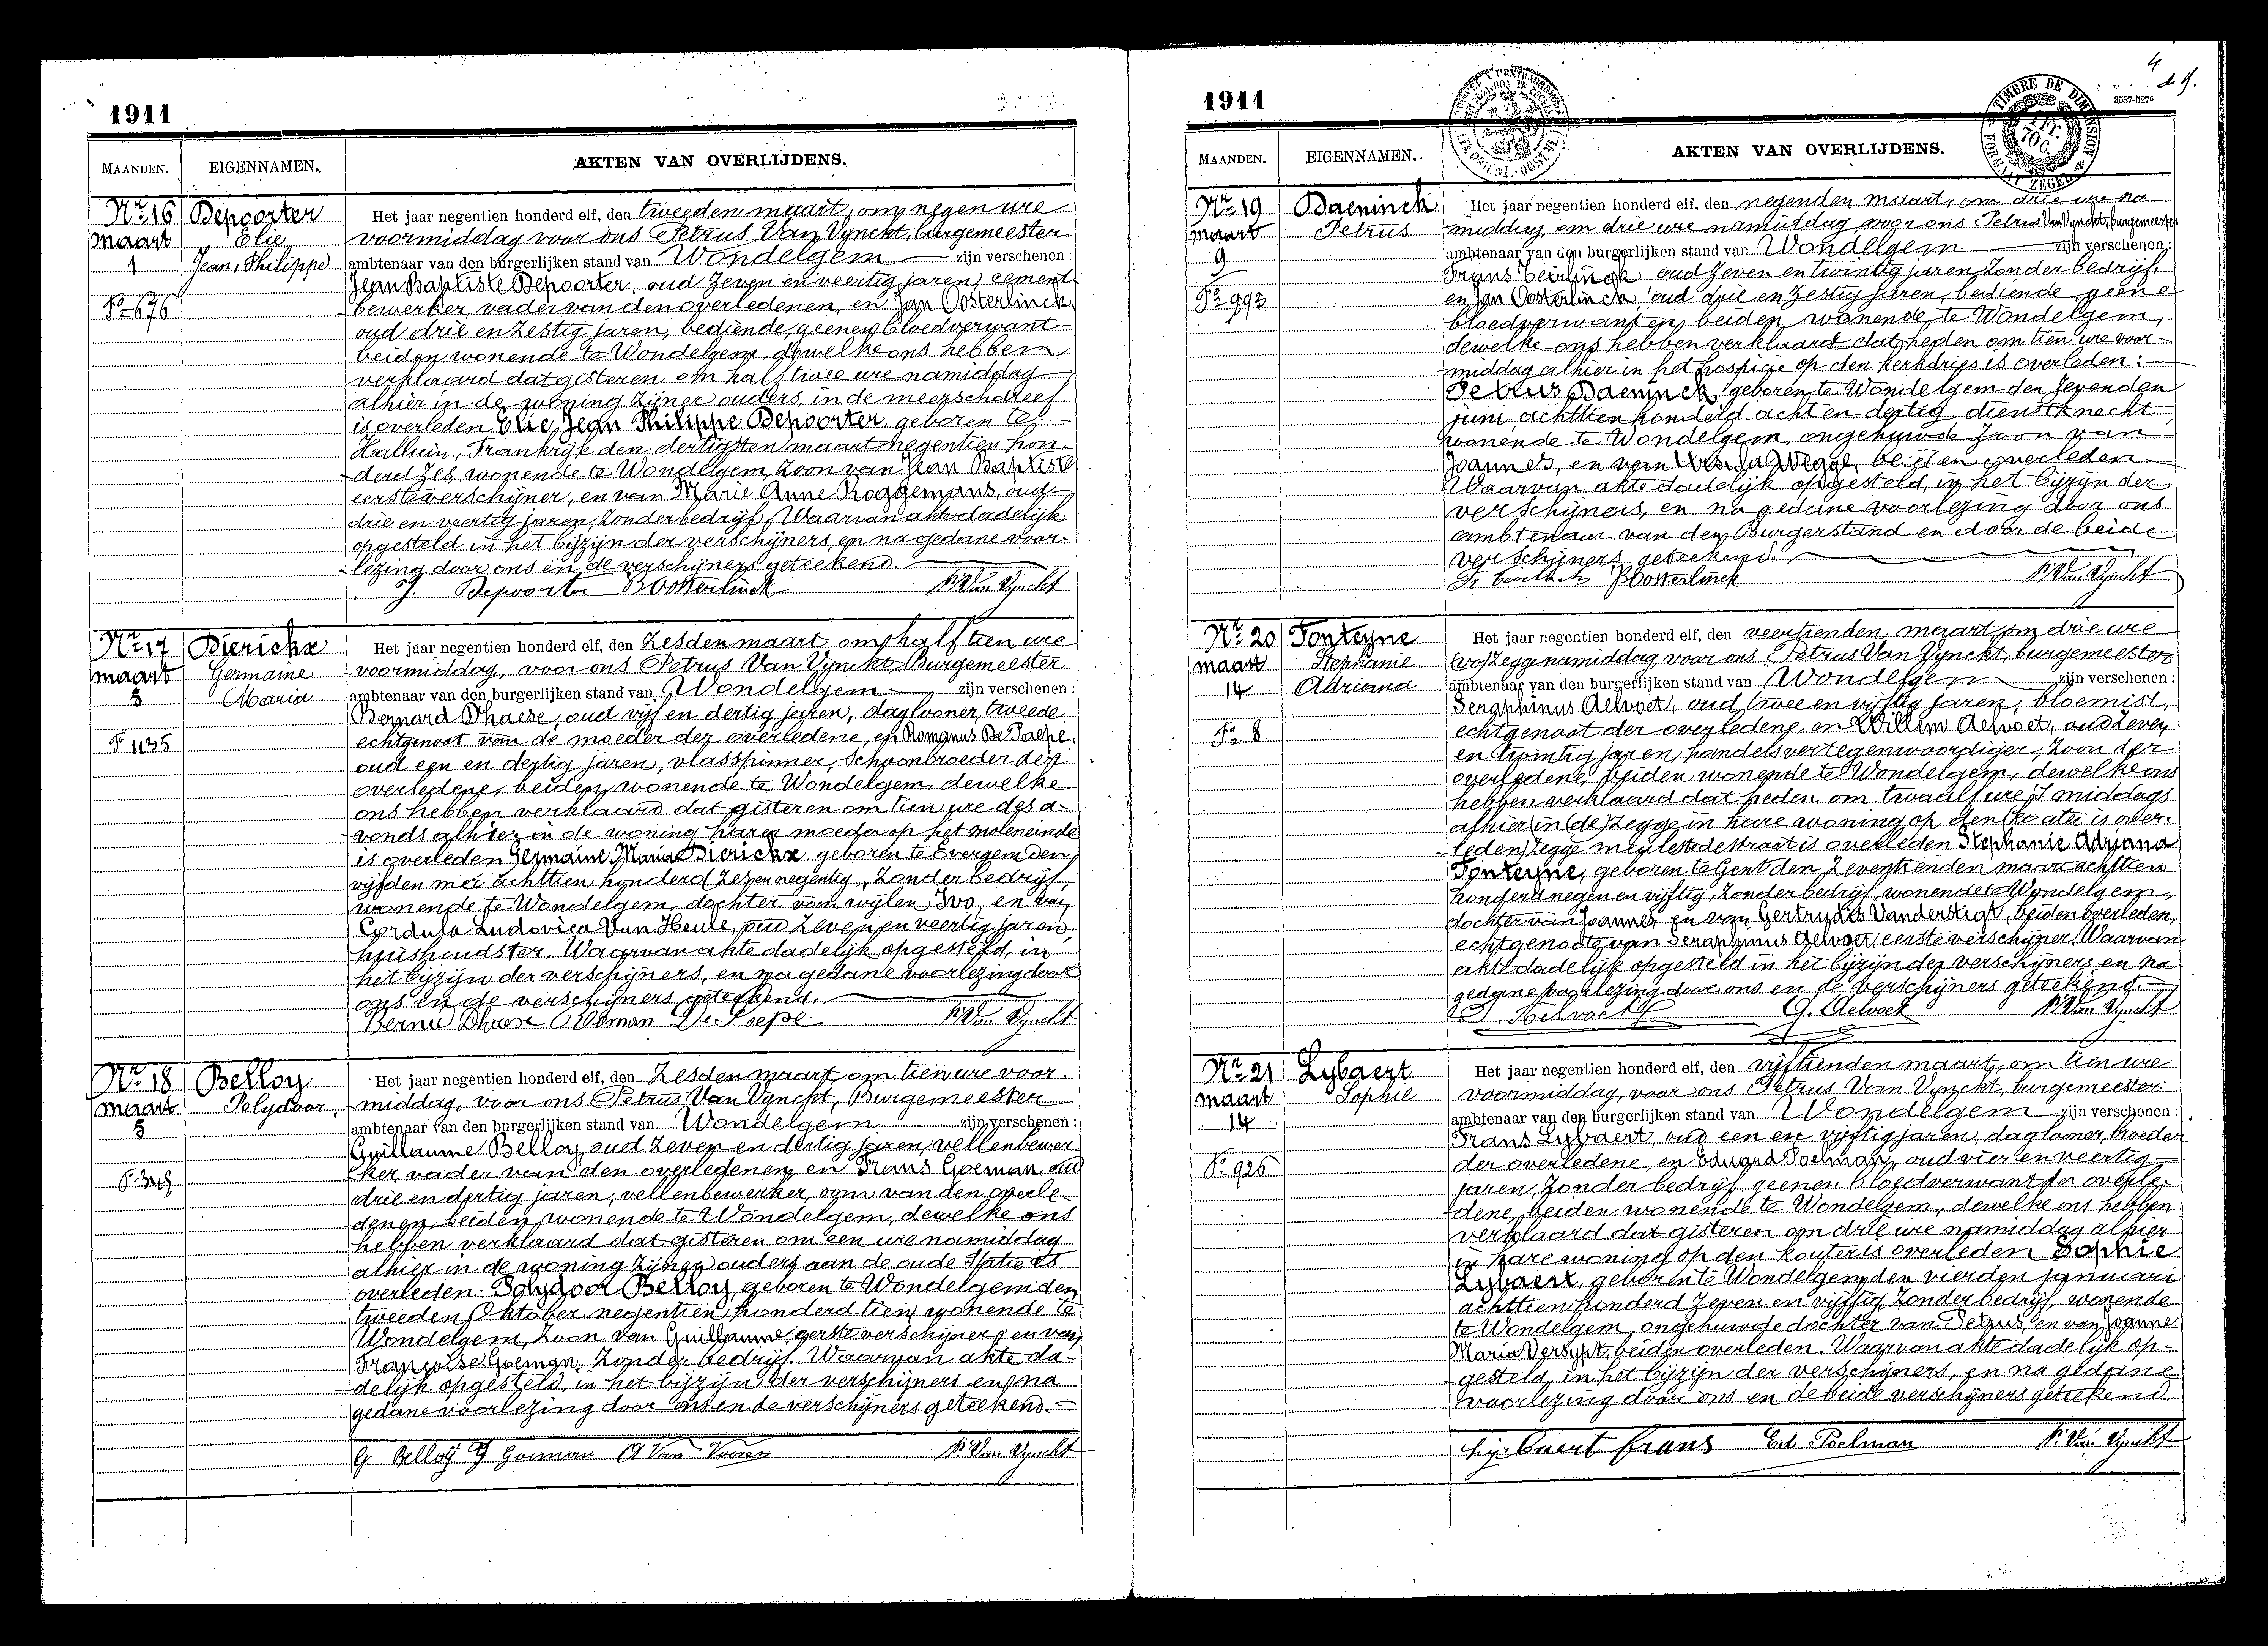 1911
MAANDEN. EIGENNAMEN. AKTEN VAN OVERLIJDENS.
Nr. 16 Depoorter Het jaar negentien honderd elf, den tweeden maart, om negen ure
maart Elie voormiddag voor ons Petrus Van Vynckt, burgemeester
1 Jean, Philippe ambtenaar van den burgerlijken stand van Wondelgem zijn verschenen:
Jean Baptiste Depoorter, oud zeven en veertig jaren, cement
Fo 676 bewerker, vader van den overledenen, en Jan Oosterlinck,
oud drie en zestig jaren, bediende, geenen bloedverwant
beiden wonende te Wondelgem, dewelke ons hebben
verklaard dat gisteren om half twee ure namiddag
alhier in de woning zijner ouders, in de meerschdreef
is overleden Elie, Jean Philippe Depoorter, geboren te
Halluin, Frankrijk den dertigsten maart negentien hon-
derd zes, wonende te Wondelgem, zoon van Jean Baptiste
eerste verschijner, en van Marie Anne Roggemans, oud
drie en veertig jaren, zonder bedrijf, Waarvan akte dadelijk
opgesteld in het bijzijn der verschijners, en na gedane voor-
lezing door ons en de verschijners geteekend.
J. Depoorter Oosterlinck P. Van Vynckt
Nr. 17 Dierickx Het jaar negentien honderd elf, den zesden maart om half tien ure
maart Germaine voormiddag, voor ons Petrus Van Vynckt, Burgemeester
5 Maria ambtenaar van den burgerlijken stand van Wondelgem zijn verschenen:
Bernard Dhaese, oud vijf en dertig jaren, daglooner, tweede
F 1135 echtgenoot van de moeder der overledene, en Romanus De Paepe,
oud een en dertig jaren, vlasspinner, schoonbroeder der
overledene, beiden wonende te Wondelgem, dewelke
ons hebben verklaard dat gisteren om tien ure des a-
vonds alhier in de woning harer moeder op het moleneinde
is overleden Germaine Maria Dierickx, geboren te Evergem den
vijfden mei achttien honderd zes en negentig, zonder bedrijf,
wonende te Wondelgem, dochter van wijlen Ivo, en van
Cordula Ludovica Van Heule, oud zeven en veertig jaren,
huishoudster. Waarvan akte dadelijk opgesteld, in
het bijzijn der verschijners, en na gedane voorlezing door
ons en de verschijners geteekend.
Bernard Dhaese Roman De Paepe P. Van Vynckt
Nr. 18 Belloy Het jaar negentien honderd elf, den zesden maart, om tien ure voor-
maart Polydoor, middag, voor ons Petrus Van Vynckt, Burgemeester
5 ambtenaar van den burgerlijken stand van Wondelgem zijn verschenen:
Guillaume Belloy, oud zeven en dertig jaren, vellenbewer-
ker, vader van den overledenen, en Frans Goeman, oud
drie en dertig jaren, vellenbewerker, oom van den overle-
denen, beiden wonende te Wondelgem, dewelke ons
hebben verklaard dat gisteren om een ure namiddag
alhier in de woning zijner ouders aan de oude Statie is
overleden: Polydoor Belloy, geboren te Wondelgem den
tweeden Oktober negentien honderd tien, wonende te
Wondelgem, zoon van Guillaume, eerste verschijner, en van
Françoise Goeman, zonder bedrijf. Waarvan akte da-
delijk opgesteld, in het bijzijn der verschijners en na
gedane voorlezing door ons en de verschijners geteekend.
G Belloy F Goeman P. Van Vynckt
4
1911
TIMBRE DE DIMENSION
3587-5275
MAANDEN. EIGENNAMEN. AKTEN VAN OVERLIJDENS.
Nr. 19 Daeninck Het jaar negentien honderd elf, den negenden maart, om drie ure na
maart Petrus middag, om drie ure namiddag voor ons Petrus Van Vynckt, burgemeester
9 ambtenaar van den burgerlijken stand van Wondelgem zijn verschenen:
Frans Ceirlinck oud zeven en twintig jaren, zonder bedrijf,
Fo 993 en Jan Oosterlinck oud drie en zestig jaren, bediende geene
bloedverwanten, beiden wonende te Wondelgem,
dewelke ons hebben verklaard dat heden om tien ure voor-
middag alhier in het hospice op den kerkdries is overleden:
Petrus Daeninck, geboren te Wondelgem den zevenden
juni achttien honderd acht en dertig, dienstknecht,
wonende te Wondelgem, ongehuwde zoon van
Joannes, en van Ursula Wegge, beiden overleden.
Waarvan akte dadelijk opgesteld, in het bijzijn der
verschijners, en na gedane voorlezing door ons
ambtenaar van den Burgerstand en door de beide
verschijners geteekend.
Oosterlinck P. Van Vynckt
Nr. 20 Fonteyne Het jaar negentien honderd elf, den veertienden maart, om drie ure
maart Stephanie (vo) zegge namiddag, voor ons Petrus Van Vynckt, burgemeester
14 Adriana ambtenaar van den burgerlijken stand van Wondelgem zijn verschenen:
Seraphinus Aelvoet, oud twee en vijftig jaren, bloemist,
Fo 8 echtgenoot der overledene, en Willem Aelvoet, oud zeven
en twintig jaren, handelsvertegenwoordiger, zoon der
overledene, beiden wonende te Wondelgem, dewelke ons
hebben verklaard dat heden om twaalf ure 's middags
alhier (in (de) zegge in hare woning op den is over-
leden) zegge meulestedestraat is overleden Stephanie Adriana
Fonteyne, geboren te Gent den zeventienden maart achttien
honderd negen en vijftig, zonder bedrijf, wonende te Wondelgem,
dochter van Joannes en van Gertrudis Vanderstigt, beiden overleden,
echtgenoote van Seraphinus Aelvoet, eerste verschijner. Waarvan
akte dadelijk opgesteld in het bijzijn der verschijners en na
gedane voorlezing door ons en de verschijners geteekend.
S. Aelvoet G. Aelvoet P. Van Vynckt
Nr. 21 Lybaert Het jaar negentien honderd elf, den vijftienden maart, om tien ure
maart Sophie voormiddag, voor ons Petrus Van Vynckt, burgemeester
14 ambtenaar van den burgerlijken stand van Wondelgem zijn verschenen:
Frans Lybaert, oud een en vijftig jaren, daglooner, broeder
Fo 926 der overledene, en Eduard Poelman, oud vier en veertig
jaren, zonder bedrijf, geenen bloedverwant der overle-
dene, beiden wonende te Wondelgem, dewelke ons hebben
verklaard dat gisteren om drie ure namiddag alhier
in hare woning op den kouter is overleden Sophie
Lybaert, geboren te Wondelgem, den vierden januari
achttien honderd zeven en vijftig, zonder bedrijf, wonende
te Wondelgem, ongehuwde dochter van Petrus, en van Joanne
Maria Versypt, beiden overleden. Waarvan akte dadelijk op-
gesteld, in het bijzijn der verschijners, en na gedane
voorlezing door ons en de beide verschijners geteekend
Lybaert frans Ed. Poelman P. Van Vynckt